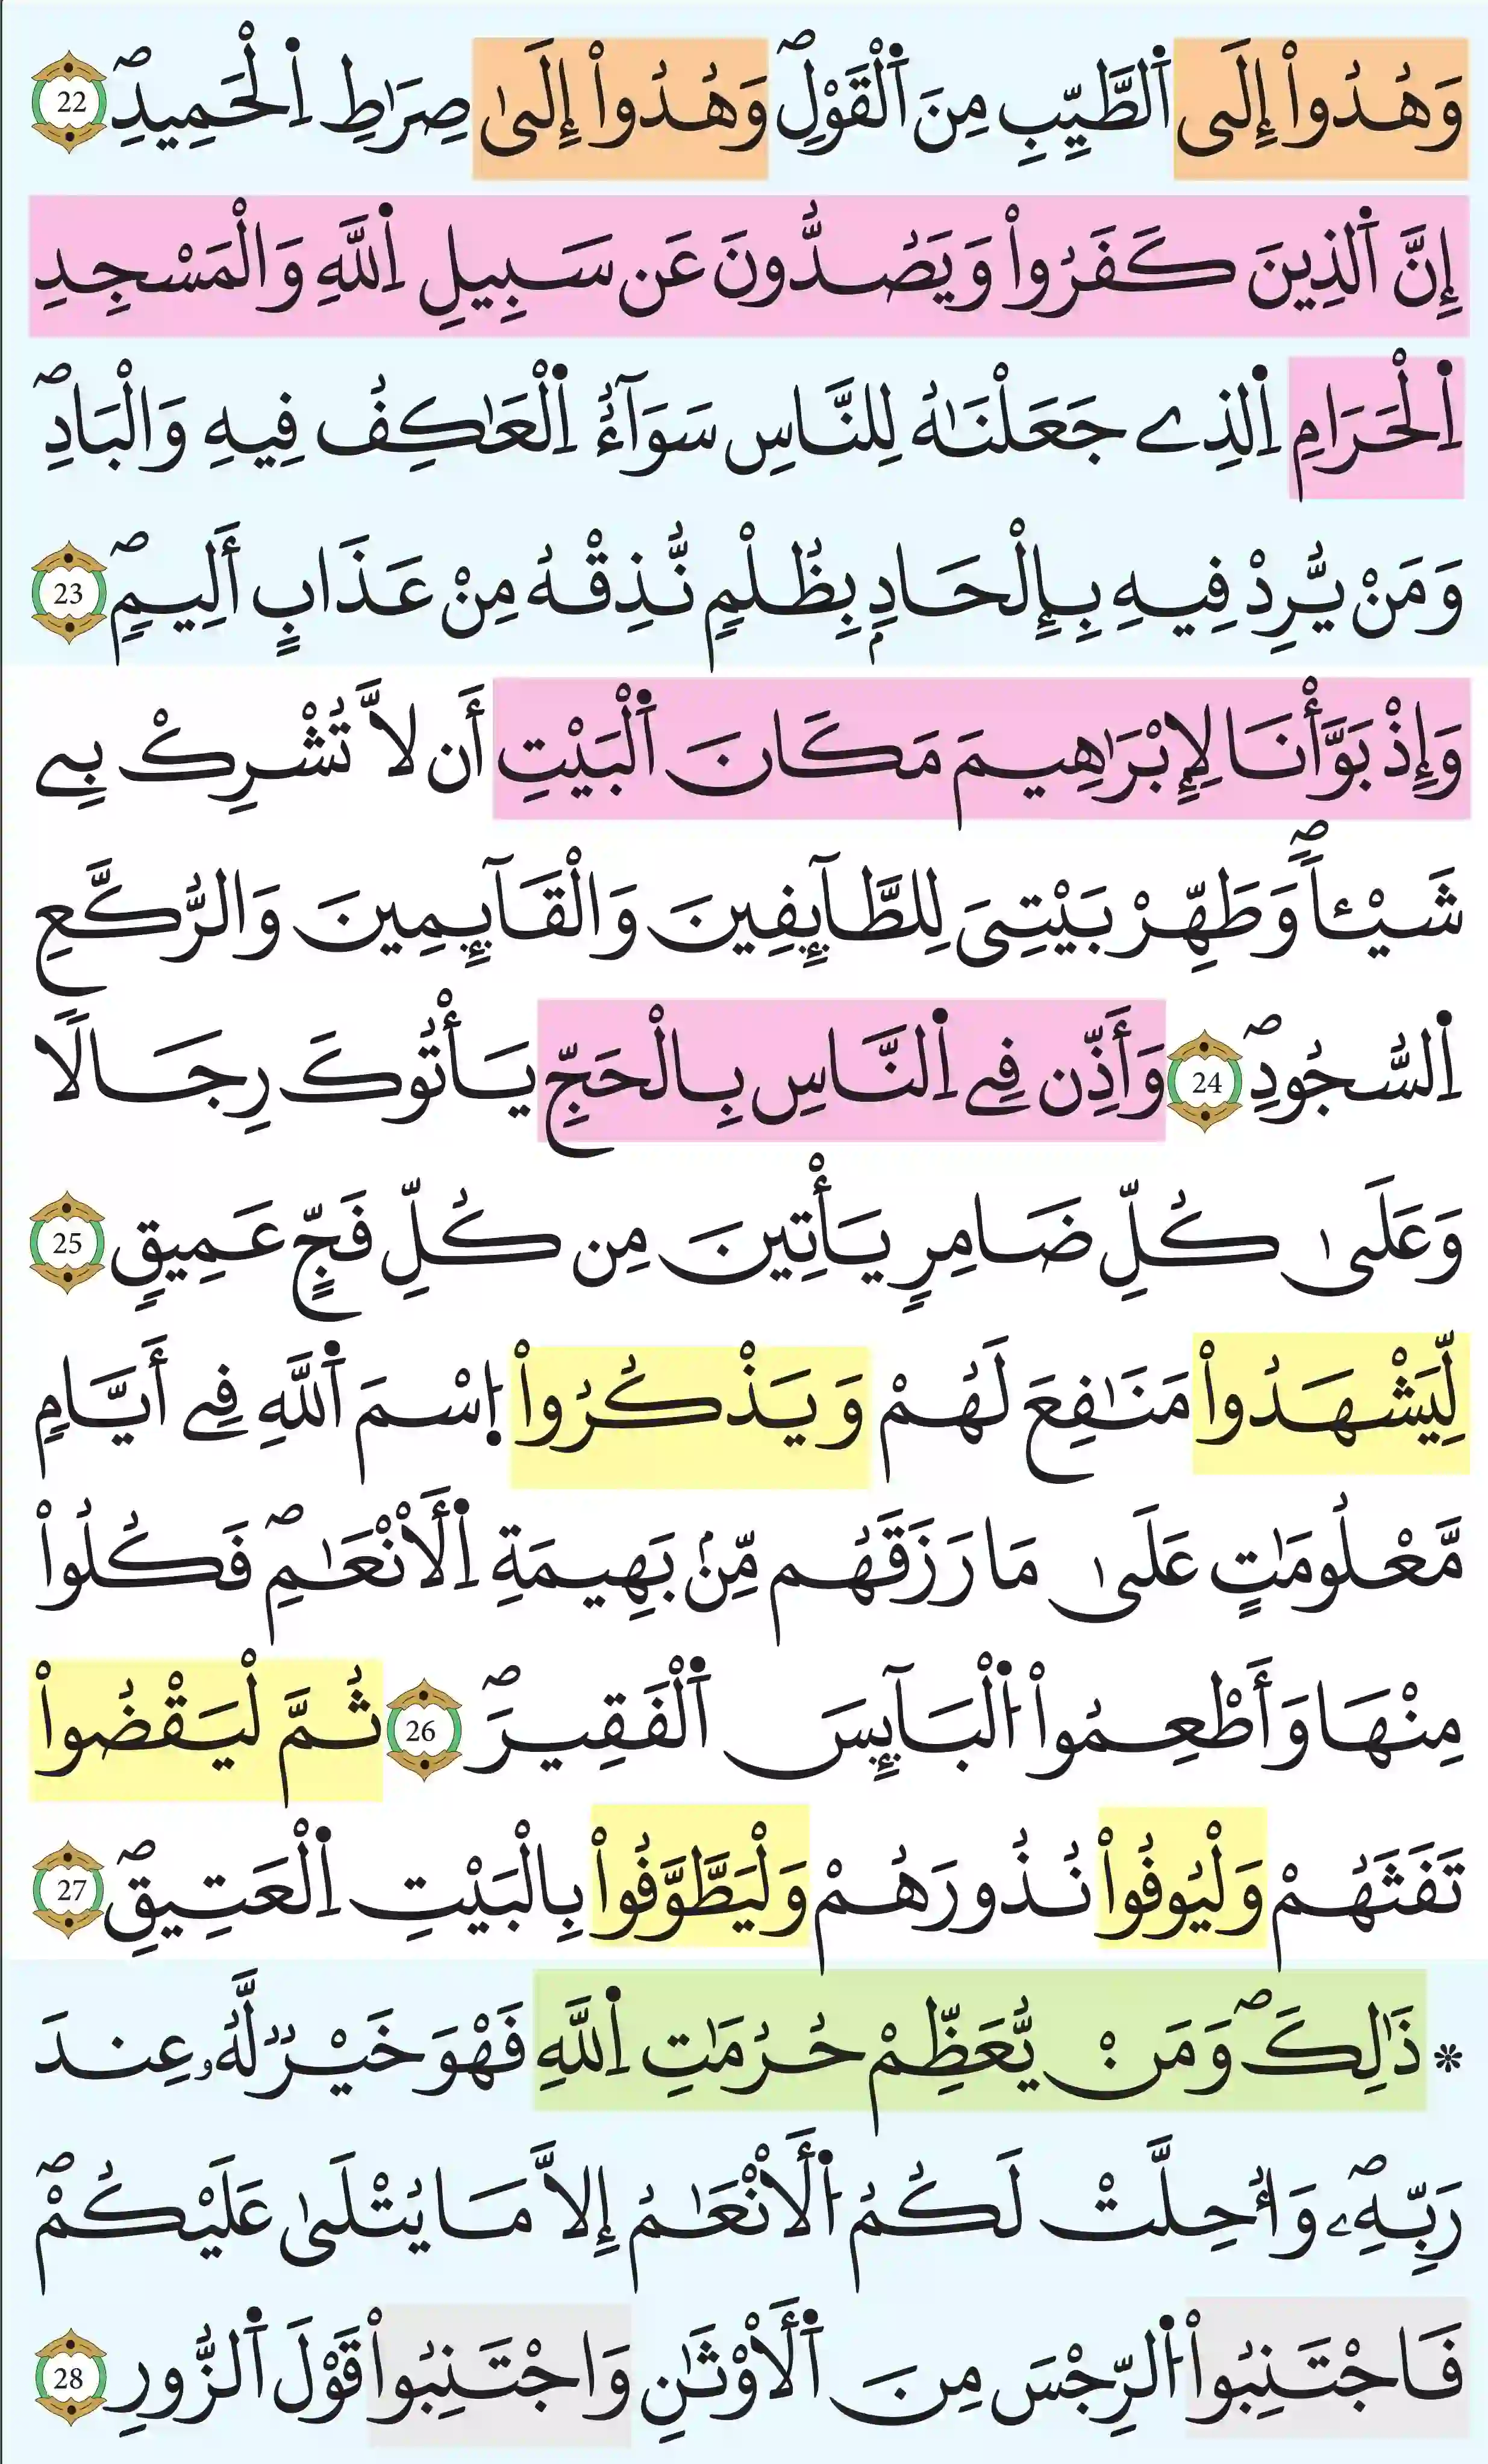 وَهُدُوٓاْ إِلَى اَ۬لطَّيِّبِ مِنَ اَ۬لْقَوْلِۖ وَهُدُوٓاْ إِلَىٰ صِرَٰطِ اِ۬لْحَمِيدِۖ 22
إِنَّ اَ۬لذِينَ كَفَرُواْ وَيَصُدُّونَ عَن سَبِيلِ اِ۬للَّهِ وَالْمَسْجِدِ
اِ۬لْحَرَامِ اِ۬لذِے جَعَلْنَٰهُ لِلنَّاسِ سَوَآءٌ اِ۬لْعَٰكِفُ فِيهِ وَالْبَادِۖ
وَمَنْ يُّرِدْ فِيهِ بِإِلْحَادِۢ بِظُلْمٖ نُّذِقْهُ مِنْ عَذَابٍ أَلِيمٖۖ 23
وَإِذْ بَوَّأْنَا لِإِبْرَٰهِيمَ مَكَانَ اَ۬لْبَيْتِ أَن لَّا تُشْرِكْ بِے
شَيْـٔاٗۖ وَطَهِّرْ بَيْتِيَ لِلطَّآئِفِينَ وَالْقَآئِمِينَ وَالرُّكَّعِ
اِ۬لسُّجُودِۖ 24 وَأَذِّن فِے اِ۬لنَّاسِ بِالْحَجِّ يَأْتُوكَ رِجَالٗا
وَعَلَىٰ كُلِّ ضَامِرٖ يَأْتِينَ مِن كُلِّ فَجٍّ عَمِيقٖ 25
لِّيَشْهَدُواْ مَنَٰفِعَ لَهُمْ وَيَذْكُرُواْ اُ۪سْمَ اَ۬للَّهِ فِے أَيَّامٖ
مَّعْلُومَٰتٍ عَلَىٰ مَا رَزَقَهُم مِّنۢ بَهِيمَةِ اِ۬لْأَنْعَٰمِۖ فَكُلُواْ
مِنْهَا وَأَطْعِمُواْ اُ۬لْبَآئِسَ اَ۬لْفَقِيرَۖ 26 ثُمَّ لْيَقْضُواْ
تَفَثَهُمْ وَلْيُوفُواْ نُذُورَهُمْ وَلْيَطَّوَّفُواْ بِالْبَيْتِ اِ۬لْعَتِيقِۖ 27
* ذَٰلِكَۖ وَمَنْ يُّعَظِّمْ حُرُمَٰتِ اِ۬للَّهِ فَهْوَ خَيْرٞ لَّهُۥ عِندَ
رَبِّهِۦۖ وَأُحِلَّتْ لَكُمُ اُ۬لْأَنْعَٰمُ إِلَّا مَا يُتْلَىٰ عَلَيْكُمْۖ
فَاجْتَنِبُواْ اُ۬لرِّجْسَ مِنَ اَ۬لْأَوْثَٰنِ وَاجْتَنِبُواْ قَوْلَ اَ۬لزُّورِ 28